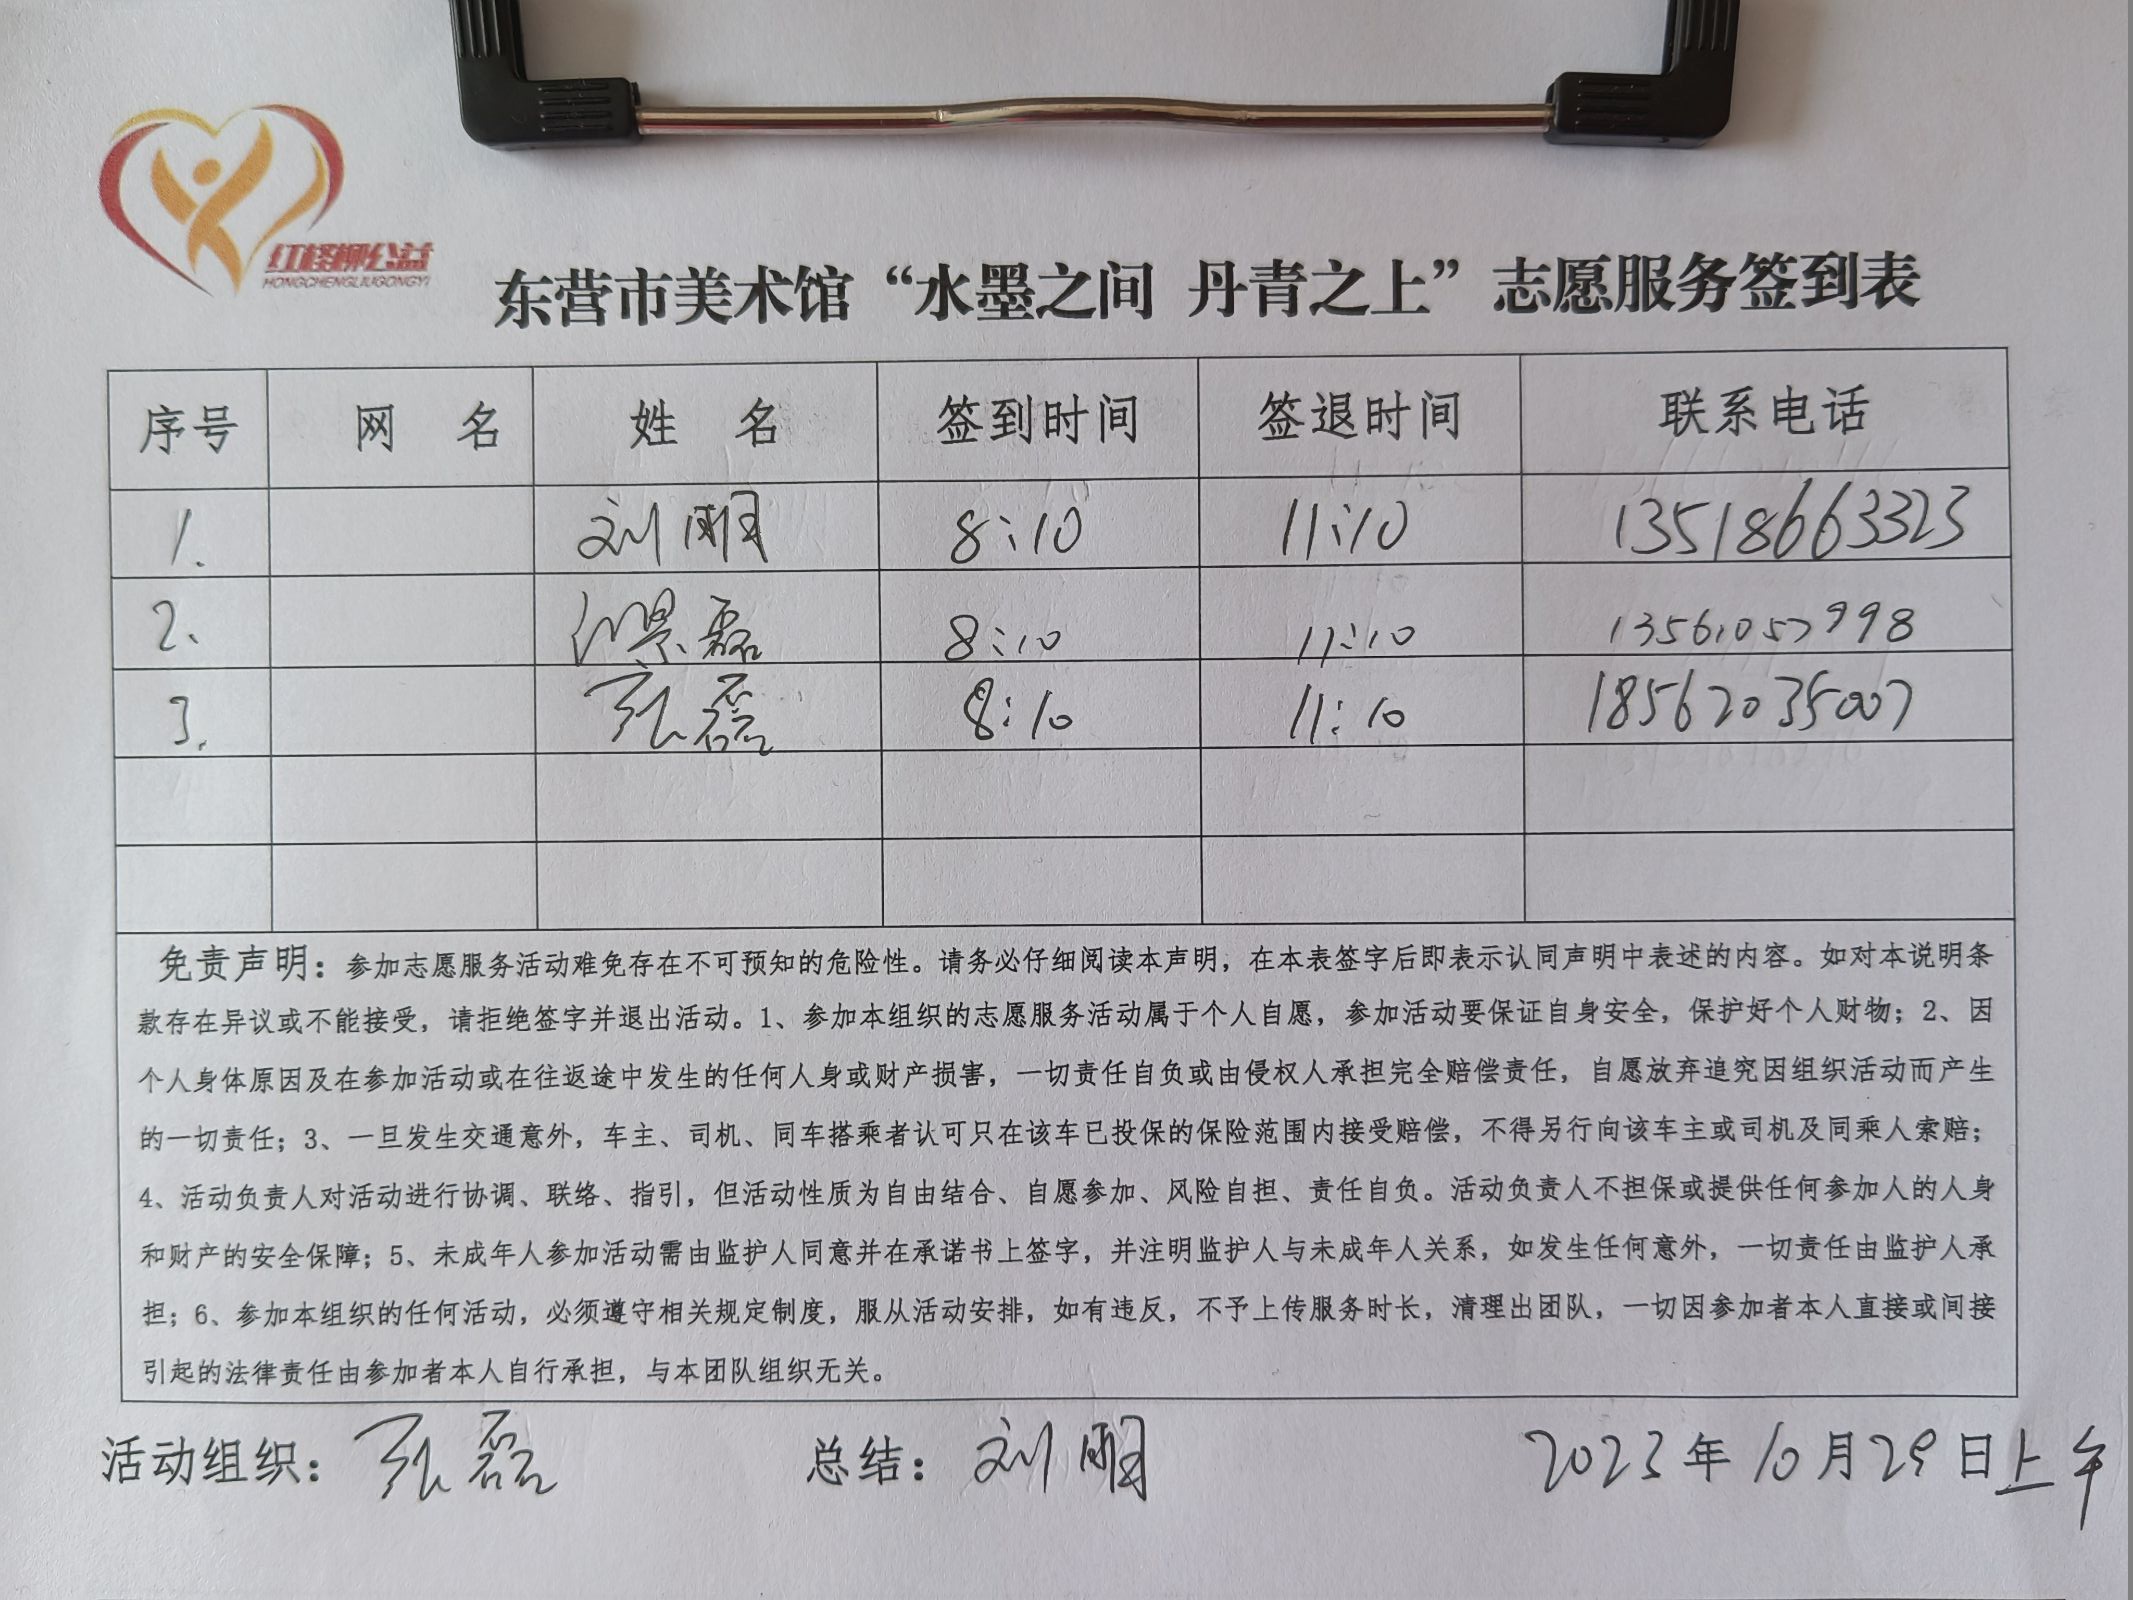 红柽柳公益
HONGCHENGLIUGONGYI
东营市美术馆“水墨之间 丹青之上”志愿服务签到表
序号 网 名 姓 名 签到时间 签退时间 联系电话
1. 刘明 8:10 11:10 13518663323
2. 景磊 8:10 11:10 13561057998
3. 张磊 8:10 11:10 18562035007
免责声明：参加志愿服务活动难免存在不可预知的危险性。请务必仔细阅读本声明，在本表签字后即表示认同声明中表述的内容。如对本说明条
款存在异议或不能接受，请拒绝签字并退出活动。1、参加本组织的志愿服务活动属于个人自愿，参加活动要保证自身安全，保护好个人财物；2、因
个人身体原因及在参加活动或在往返途中发生的任何人身或财产损害，一切责任自负或由侵权人承担完全赔偿责任，自愿放弃追究因组织活动而产生
的一切责任；3、一旦发生交通意外，车主、司机、同车搭乘者认可只在该车已投保的保险范围内接受赔偿，不得另行向该车主或司机及同乘人索赔；
4、活动负责人对活动进行协调、联络、指引，但活动性质为自由结合、自愿参加、风险自担、责任自负。活动负责人不担保或提供任何参加人的人身
和财产的安全保障；5、未成年人参加活动需由监护人同意并在承诺书上签字，并注明监护人与未成年人关系，如发生任何意外，一切责任由监护人承
担；6、参加本组织的任何活动，必须遵守相关规定制度，服从活动安排，如有违反，不予上传服务时长，清理出团队，一切因参加者本人直接或间接
引起的法律责任由参加者本人自行承担，与本团队组织无关。
活动组织：张磊 总结：刘明 2023年10月29日上午